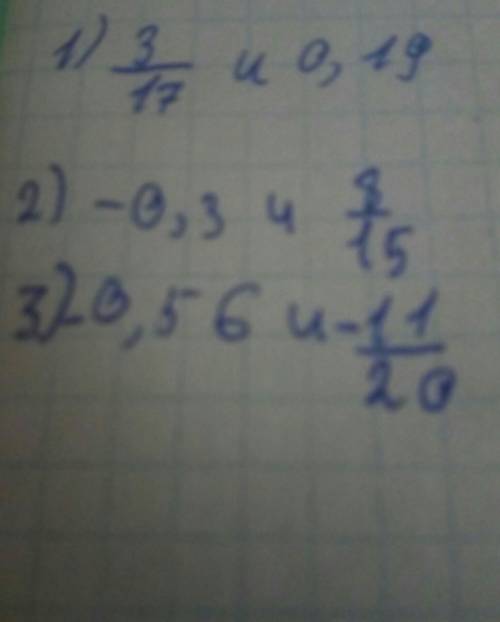 1) 3/17 и 0,19
2) -0,3 и 8/15
3) -0,56 и -11/20